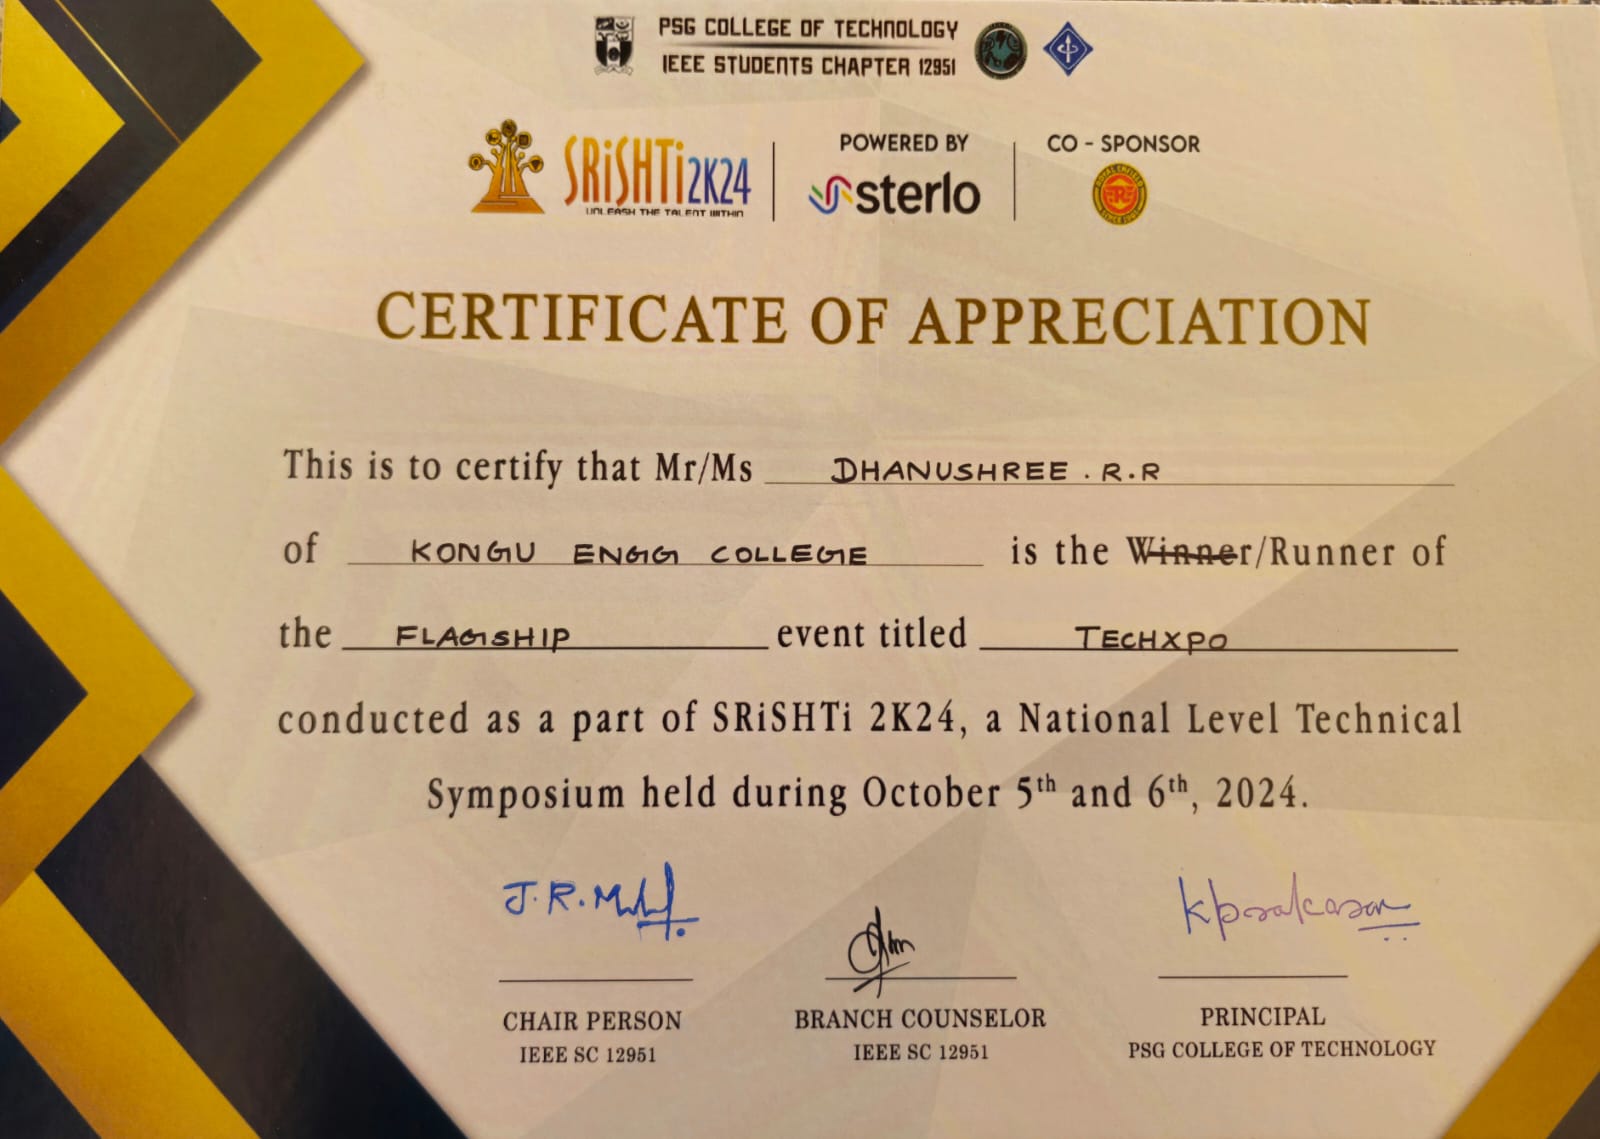 PSG COLLEGE OF TECHNOLOGY
IEEE STUDENTS CHAPTER 12951
SRiSHTi 2K24
UNLEASH THE TALENT WITHIN
POWERED BY
sterlo
CO - SPONSOR
ROYAL ENFIELD
SINCE 1901
CERTIFICATE OF APPRECIATION
This is to certify that Mr/Ms DHANUSHREE . R.R
of KONGU ENGG COLLEGE is the Winner/Runner of
the FLAGSHIP event titled TECHXPO
conducted as a part of SRiSHTi 2K24, a National Level Technical
Symposium held during October 5th and 6th, 2024.
J.R.
CHAIR PERSON
IEEE SC 12951
BRANCH COUNSELOR
IEEE SC 12951
PRINCIPAL
PSG COLLEGE OF TECHNOLOGY